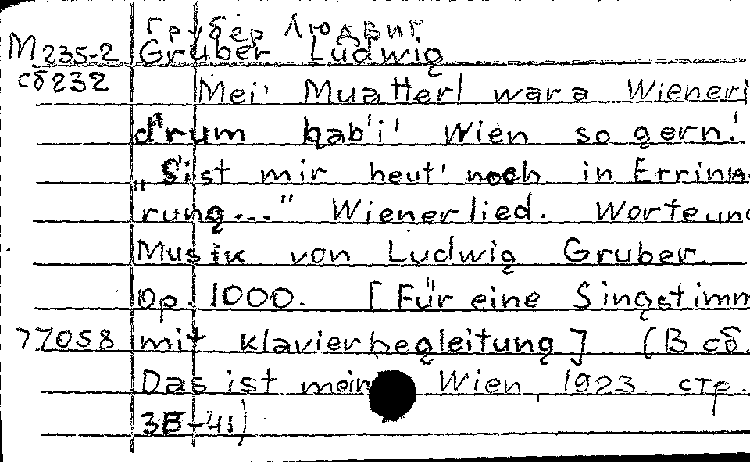 Грубер Людвиг
М 235-2 Gruber Ludwig
сб 232 Mei' Muatterl war a Wienerl
d'rum hab' i' Wien so gern!
"'S ist mir heut' noch in Errinne
rung..." Wienerlied. Worte und
Musik von Ludwig Gruber.
Op. 1000. [Für eine Singstimm
77058 mit Klavierbegleitung] (В сб.
Das ist mein Wien, 1923 стр.
-41)